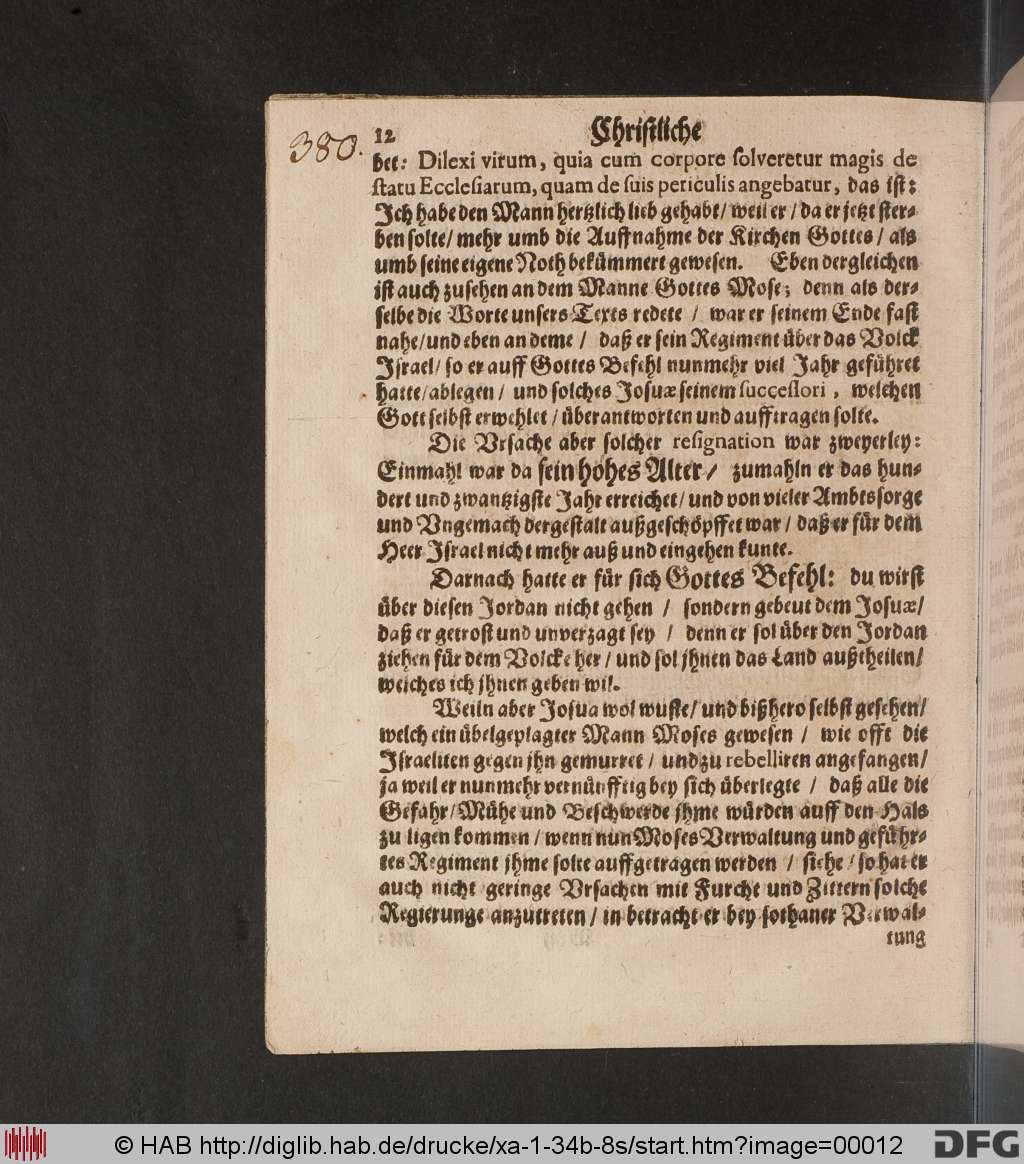 380.
12 Christliche
bet: Dilexi virum, quia cum corpore solveretur magis de
statu Ecclesiarum, quam de suis periculis angebatur, das ist:
Ich habe den Mann hertzlich lieb gehabt/ weil er / da er jetzt ster-
ben solte/ mehr umb die Auffnahme der Kirchen Gottes / als
umb seine eigene Noth bekümmert gewesen. Eben dergleichen
ist auch zusehen an dem Manne Gottes Mose; denn als der-
selbe die Worte unsers Texts redete / war er seinem Ende fast
nahe/ und eben an deme / daß er sein Regiment über das Volck
Israel/ so er auff Gottes Befehl nunmehr viel Jahr geführet
hatte/ ablegen / und solches Josuæ seinem successori, welchen
Gott selbst erwehlet / überantworten und aufftragen solte.
Die Vrsache aber solcher resignation war zweyerley:
Einmahl war da sein hohes Alter/ zumahln er das hun-
dert und zwantzigste Jahr erreichet/ und von vieler Ambtssorge
und Vngemach dergestalt außgeschöpffet war / daß er für dem
Heer Israel nicht mehr auß und eingehen kunte.
Darnach hatte er für sich Gottes Befehl: du wirst
über diesen Jordan nicht gehen / sondern gebeut dem Josuæ/
daß er getrost und unverzagt sey / denn er sol über den Jordan
ziehen für dem Volcke her / und sol jhnen das Land außtheilen/
welches ich jhnen geben wil.
Weiln aber Josua wol wuste/ und bißhero selbst gesehen/
welch ein übelgeplagter Mann Moses gewesen / wie offt die
Israeliten gegen jhn gemurret / und zu rebelliren angefangen/
ja weil er nunmehr vernünfftig bey sich überlegte / daß alle die
Gefahr/ Mühe und Beschwerde jhme würden auff den Hals
zu ligen kommen / wenn nun Moses Verwaltung und geführ-
tes Regiment jhme solte auffgetragen werden / siehe / so hat er
auch nicht geringe Vrsachen mit Furcht und Zittern solche
Regierunge anzutreten / in betracht er bey sothaner Verwal-
tung
© HAB http://diglib.hab.de/drucke/xa-1-34b-8s/start.htm?image=00012
DFG